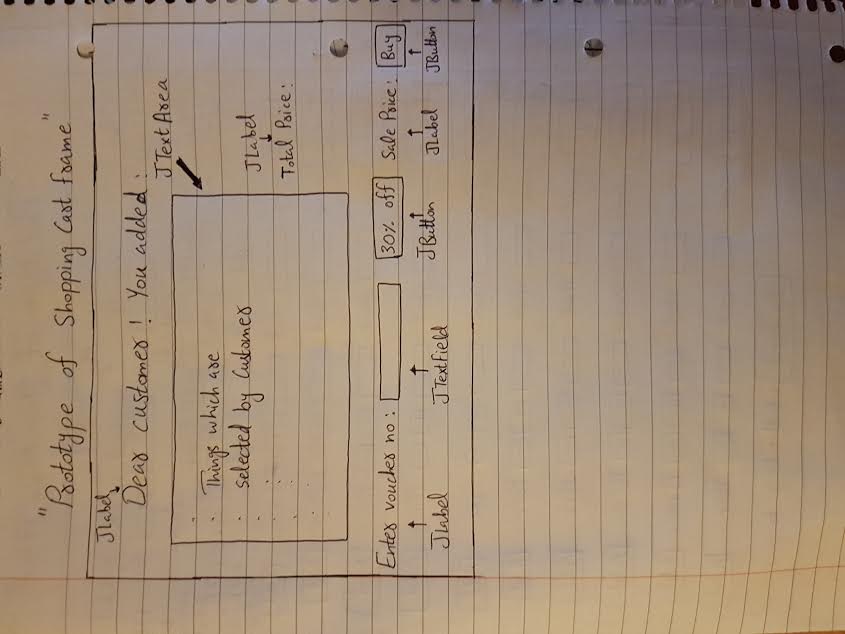 "Prototype of Shopping Cart frame"
JLabel
Dear customer! You added:
JTextArea
Things which are
selected by Customer
JLabel
Total Price:
Enter voucher no: 30% off Sale Price: Buy
JLabel JTextField JButton JLabel JButton